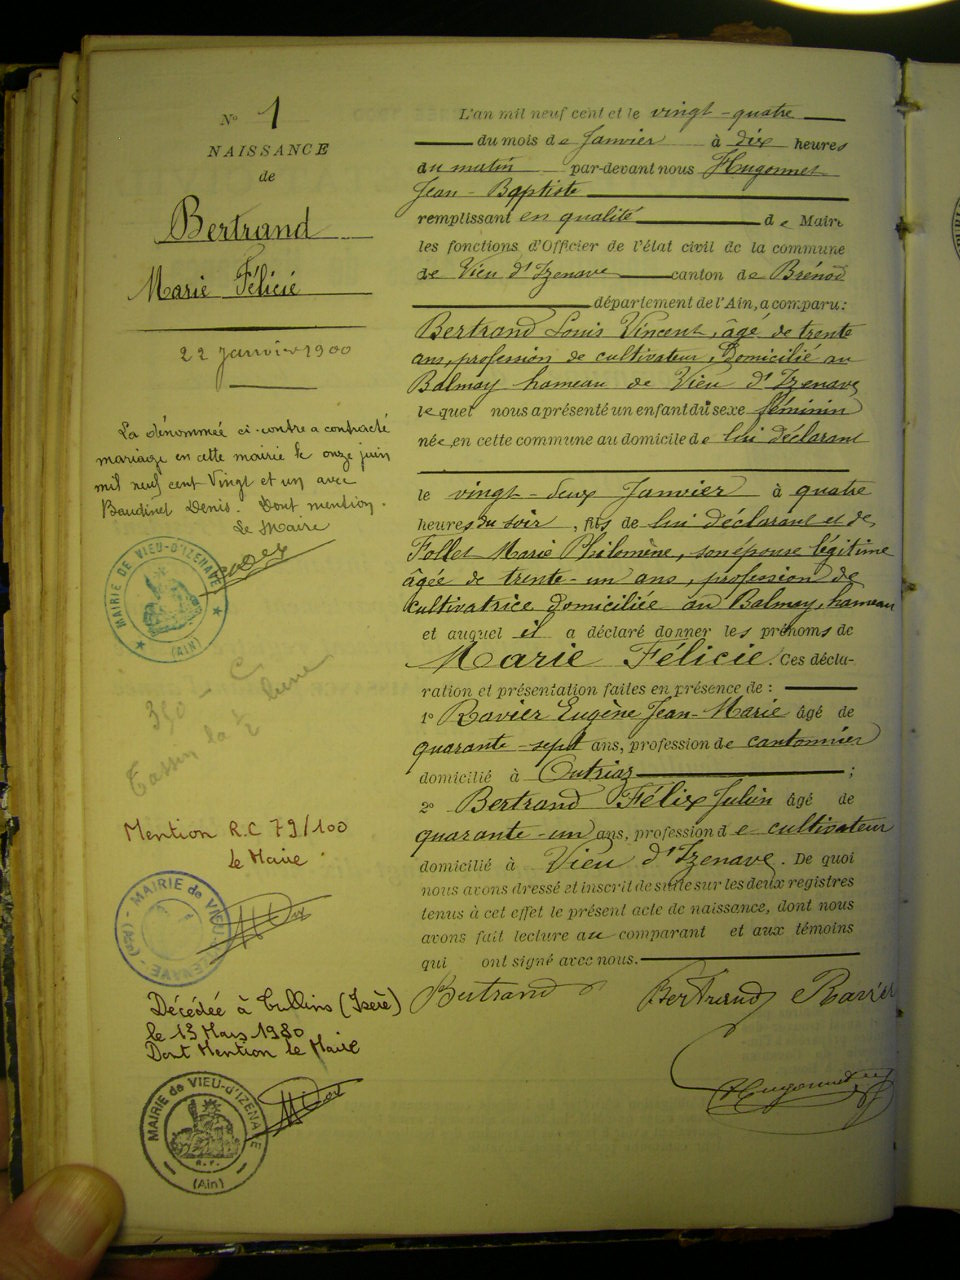 N° 1
NAISSANCE
de
Bertrand
Marie Félicie
22 Janvier 1900
La dénommée ci-contre a contracté
mariage en cette mairie le onze juin
mil neuf cent Vingt et un avec
Baudinet Denis. Dont mention.
Le Maire
MAIRIE DE VIEU-D'IZENAVE
(AIN)
390 -
Tassin la 1/2 lune
Mention R.C 79/100
le Maire
MAIRIE de VIEU-d'IZENAVE (Ain)
Décédée à Tullins (Isère)
le 13 Mars 1980
Dont Mention le Maire
MAIRIE de VIEU-d'IZENAVE
R.F.
(Ain)
L'an mil neuf cent et le vingt-quatre
du mois de Janvier à dix heures
du matin par-devant nous Hugonnet
Jean-Baptiste
remplissant en qualité de Maire
les fonctions d'Officier de l'état civil de la commune
de Vieu d'Izenave canton de Brénod
département de l'Ain, a comparu:
Bertrand Louis Vincent, âgé de trente
ans, profession de cultivateur, domicilié au
Balmay hameau de Vieu d'Izenave
lequel nous a présenté un enfant du sexe féminin
née, en cette commune au domicile de lui déclarant
le vingt-deux Janvier à quatre
heures du soir, fils de lui déclarant et de
Follet Marie Philomène, son épouse légitime
âgée de trente-un ans, profession de
cultivatrice domiciliée au Balmay, hameau
et auquel il a déclaré donner les prénoms de
Marie Félicie. Ces décla-
ration et présentation faites en présence de :
1° Ravier Eugène Jean-Marie âgé de
quarante-sept ans, profession de cantonnier
domicilié à Outriaz ;
2° Bertrand Félix Julin âgé de
quarante-un ans, profession de cultivateur
domicilié à Vieu d'Izenave. De quoi
nous avons dressé et inscrit de suite sur les deux registres
tenus à cet effet le présent acte de naissance, dont nous
avons fait lecture au comparant et aux témoins
qui ont signé avec nous.
Bertrand Bertrand Ravier
Hugonnet